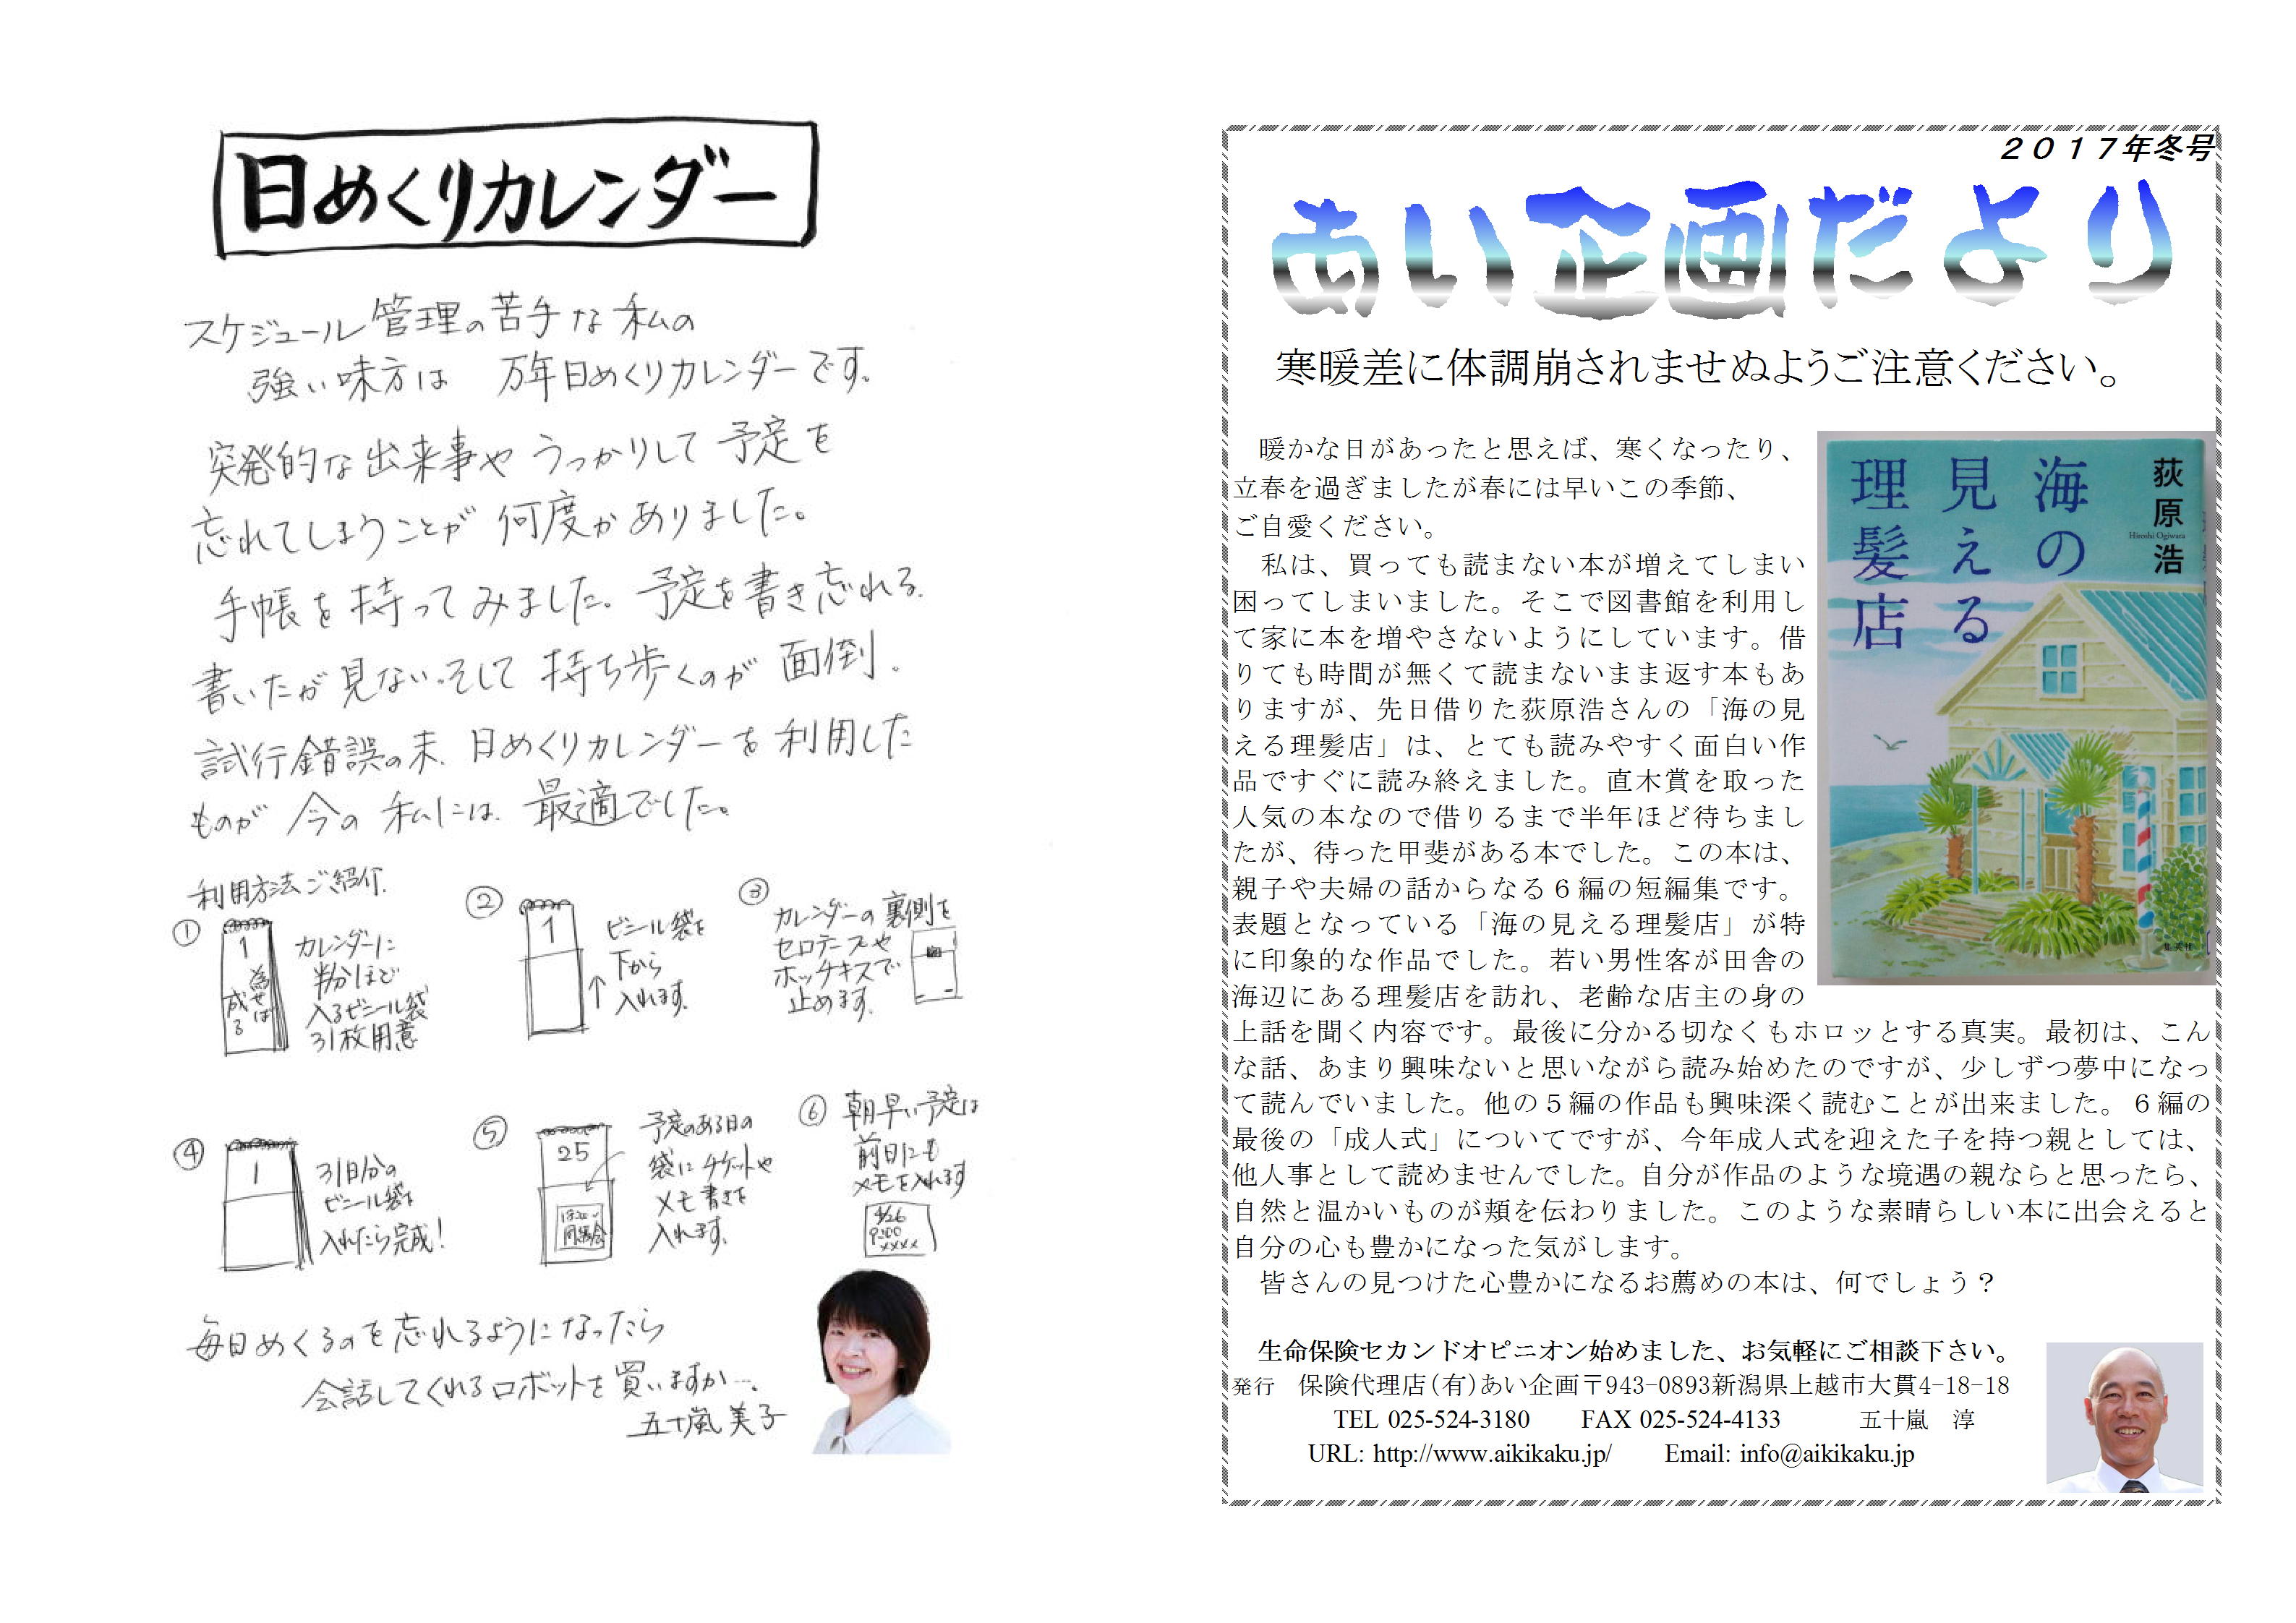 日めくりカレンダー
スケジュール管理の苦手な私の
強い味方は 万年日めくりカレンダーです。
突発的な出来事や うっかりして 予定を
忘れてしまうことが 何度かありました。
手帳を持ってみました。予定を書き忘れる、
書いたが見ない。そして 持ち歩くのが 面倒。
試行錯誤の末、日めくりカレンダーを利用した
ものが 今の 私には、最適でした。
利用方法ご紹介
①
1
為せば
成る
カレンダーに
半分ほど
入るビニール袋
31枚用意
②
1
ビニール袋を
下から
入れます。
③
カレンダーの裏側を
セロテープや
ホッチキスで
止めます。
④
1
31日分の
ビニール袋を
入れたら完成!
⑤
25
同級会
予定のある日の
袋にチケットや
メモ書きを
入れます。
⑥
朝早い予定は
前日にも
メモを入れます
4/26
9:00
××××
毎日めくるのを忘れるようになったら
会話してくれるロボットを買いますか…。
五十嵐美子
2017年冬号
あい企画だより
寒暖差に体調崩されませぬようご注意ください。
暖かな日があったと思えば、寒くなったり、
立春を過ぎましたが春には早いこの季節、
ご自愛ください。
私は、買っても読まない本が増えてしまい
困ってしまいました。そこで図書館を利用し
て家に本を増やさないようにしています。借
りても時間が無くて読まないまま返す本もあ
りますが、先日借りた荻原浩さんの「海の見
える理髪店」は、とても読みやすく面白い作
品ですぐに読み終えました。直木賞を取った
人気の本なので借りるまで半年ほど待ちまし
たが、待った甲斐がある本でした。この本は、
親子や夫婦の話からなる6編の短編集です。
表題となっている「海の見える理髪店」が特
に印象的な作品でした。若い男性客が田舎の
海辺にある理髪店を訪れ、老齢な店主の身の
上話を聞く内容です。最後に分かる切なくもホロッとする真実。最初は、こん
な話、あまり興味ないと思いながら読み始めたのですが、少しずつ夢中になっ
て読んでいました。他の5編の作品も興味深く読むことが出来ました。6編の
最後の「成人式」についてですが、今年成人式を迎えた子を持つ親としては、
他人事として読めませんでした。自分が作品のような境遇の親ならと思ったら、
自然と温かいものが頬を伝わりました。このような素晴らしい本に出会えると
自分の心も豊かになった気がします。
皆さんの見つけた心豊かになるお薦めの本は、何でしょう?
荻原浩
Hiroshi Ogiwara
海の
見える
理髪店
集英社
生命保険セカンドオピニオン始めました、お気軽にご相談下さい。
発行 保険代理店(有)あい企画〒943-0893新潟県上越市大貫4-18-18
TEL 025-524-3180 FAX 025-524-4133 五十嵐 淳
URL: http://www.aikikaku.jp/ Email: info@aikikaku.jp